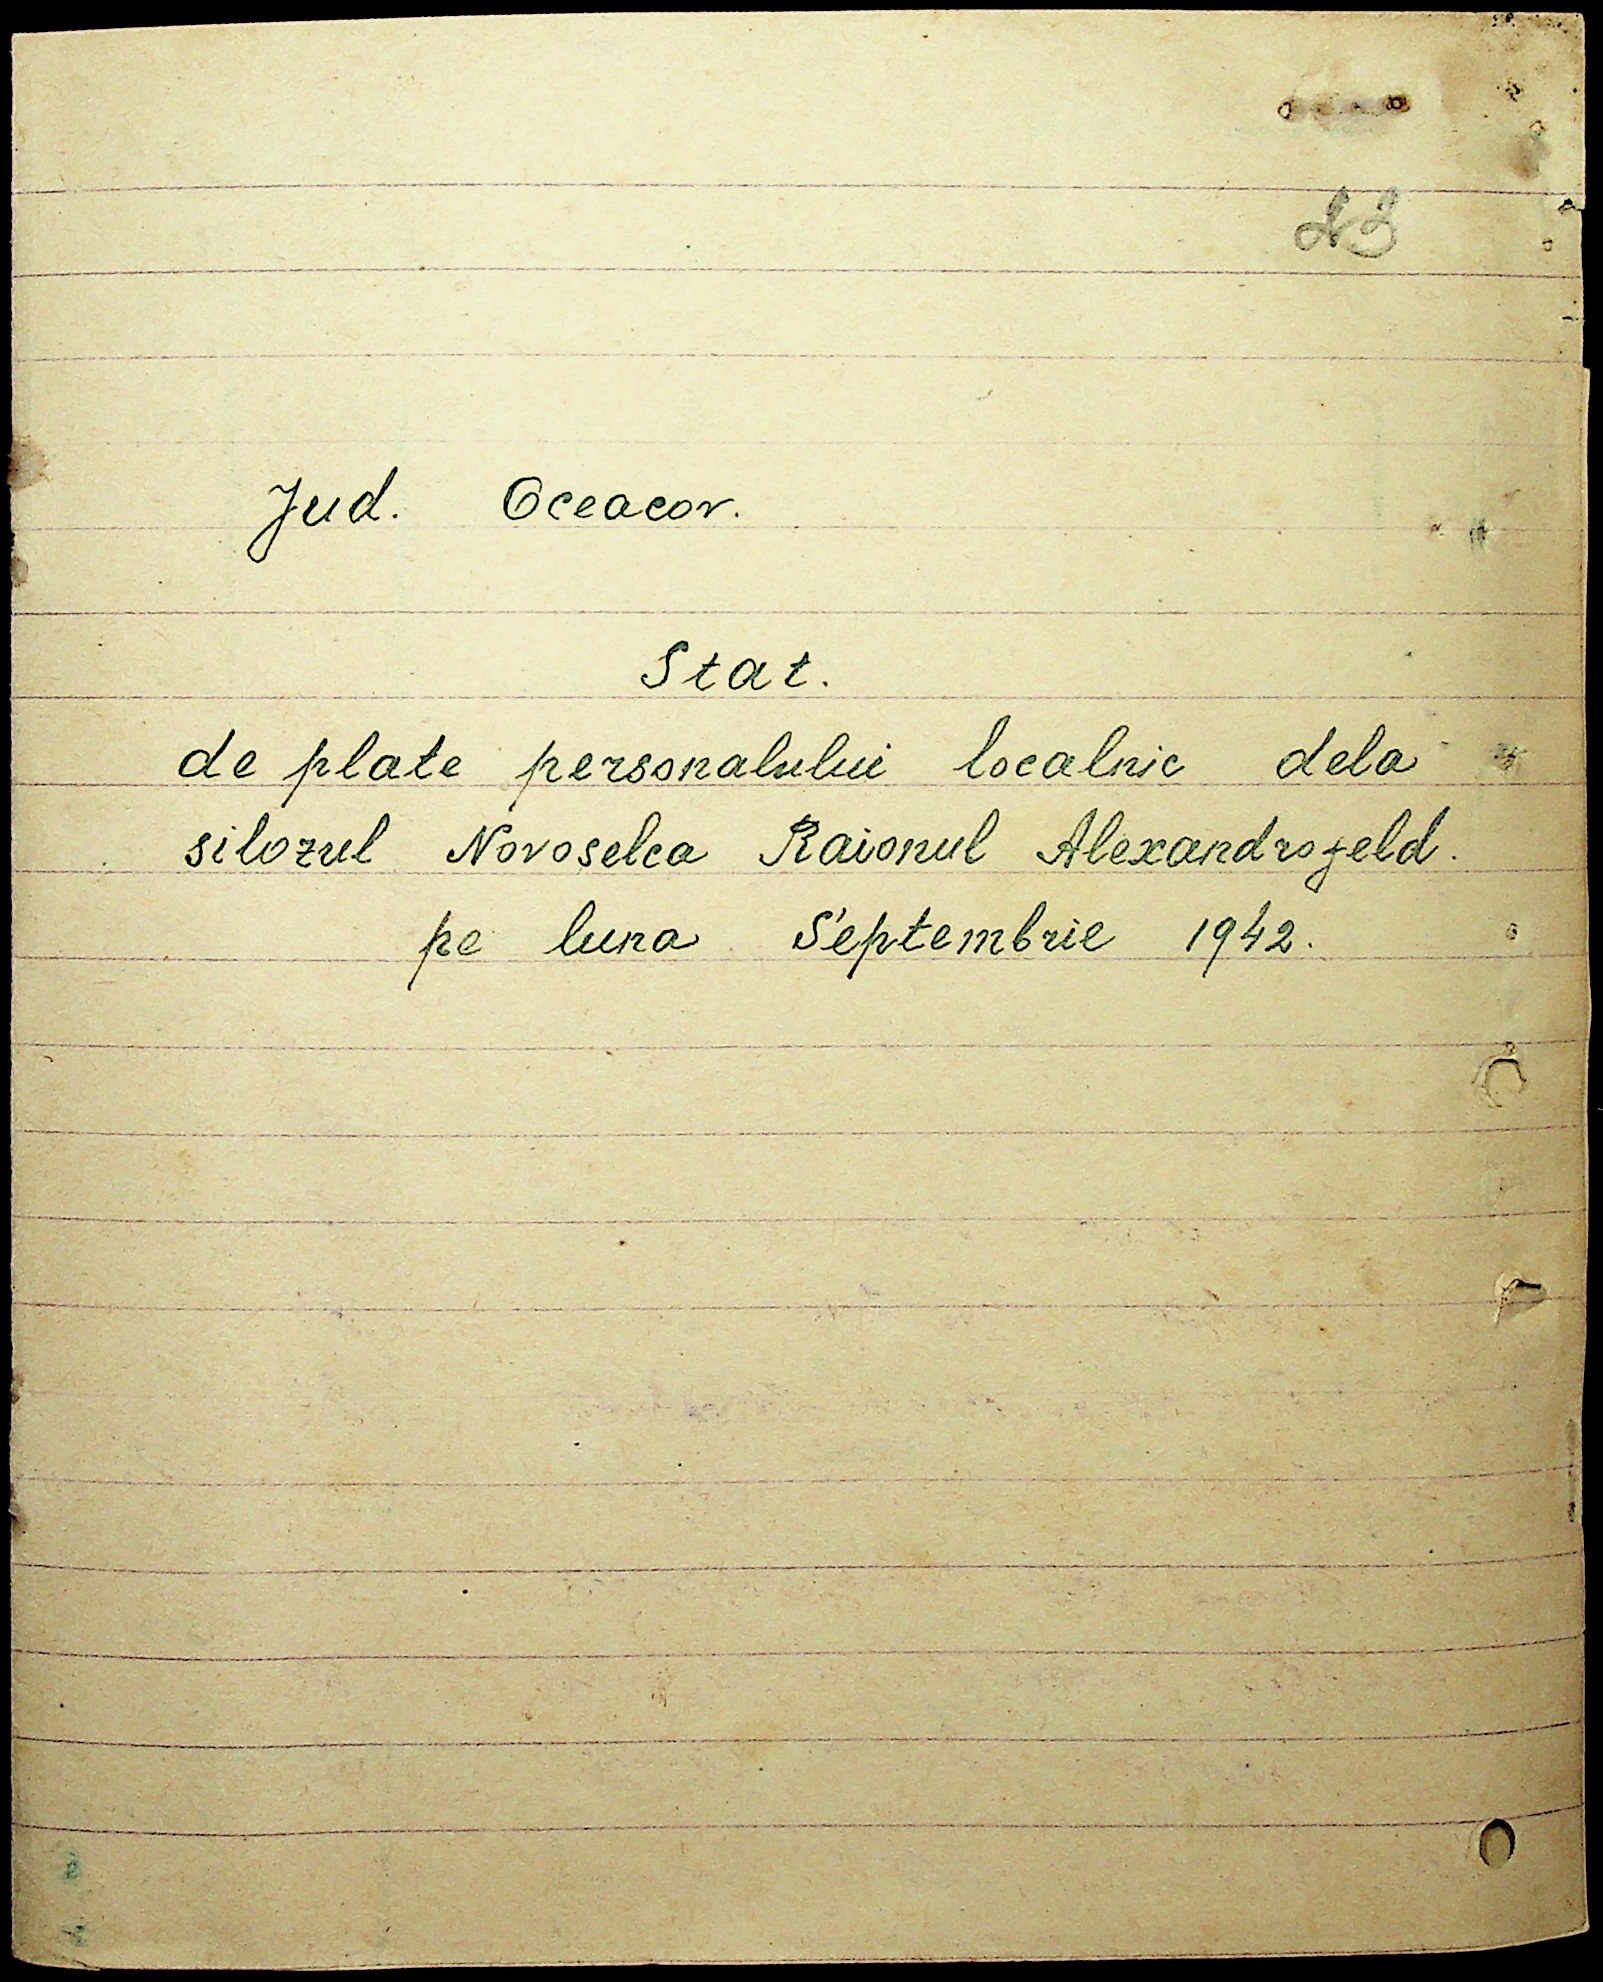 23
Jud. Oceacov.
Stat.
de plate personalului localnic dela
silozul Novoselca Raionul Alexandrofeld.
pe luna Septembrie 1942.